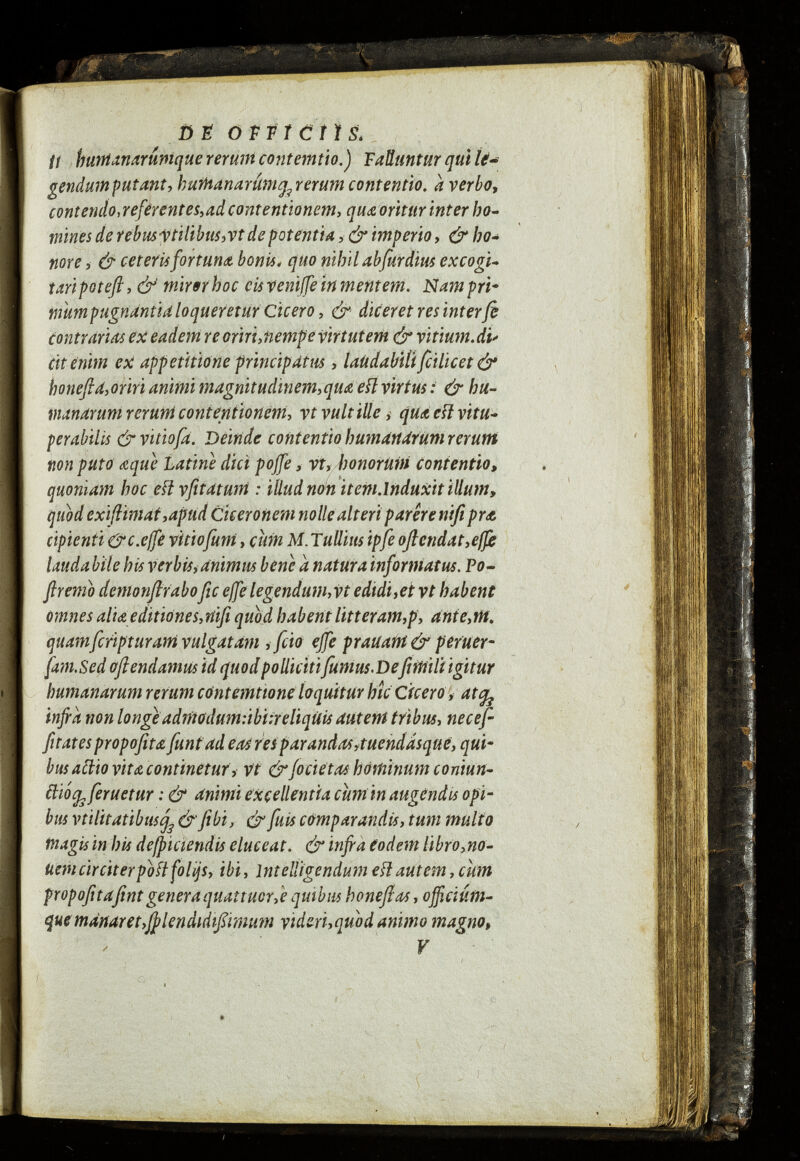 DE OFFICIIS.
11 humanarúmque rerum contemtio.) Falluntur qui le-
gendum putant, humanarúmq; rerum contentio. à verbo,
contendo, referentes, ad contentionem, quæ oritur inter ho-
mines de rebus vtilibus, vt de potentia, & imperio, & ho-
nore, & ceteris fortunæ bonis. quo nihil absurdius excogi-
tari potest, & miror hoc eis venisse in mentem. Nam pri-
mùm pugnantia loqueretur Cicero, & diceret res inter se
contrarias ex eadem re oriri, nempe virtutem & vitium. di-
cit enim ex appetitione principatus, laudabili scilicet &
honesta, oriri animi magnitudinem, quæ est virtus: & hu-
manarum rerum contentionem, vt vult ille, quæ est vitu-
perabilis & vitiosa. Deinde contentio humanarum rerum
non puto æquè Latinè dici posse, vt, honorum contentio,
quoniam hoc est vsitatum: illud non item. Induxit illum,
quòd existimat, apud Ciceronem nolle alteri parére nisi præ
cipienti &c. esse vitiosum, cùm M. Tullius ipse ostendat, esse
laudabile his verbis, animus benè à natura informatus. Po-
stremò demonstrabo sic esse legendum, vt edidi, et vt habent
omnes aliæ editiones, nisi quòd habent litteram, p, ante, m.
quam scripturam vulgatam, scio esse prauam & peruer-
sam. Sed ostendamus id quod polliciti sumus. De simili igitur
humanarum rerum contemtione loquitur hîc Cicero, atq;
infrà non longè admodum: ibi: reliquis autem tribus, neces-
sitates propositæ sunt ad eas res parandas, tuendásque, qui-
bus actio vitæ continetur, vt & societas hominum coniun-
ctióq; seruetur: & animi excellentia cùm in augendis opi-
bus vtilitatibusq; & sibi, & suis comparandis, tum multo
magis in his despiciendis eluceat. & infrà eodem libro, no-
uem circiter pòst folijs, ibi, Intelligendum est autem, cùm
proposita sint genera quattuor, è quibus honestas, officiúm-
que manaret, splendidissimum videri, quòd animo magno,
V